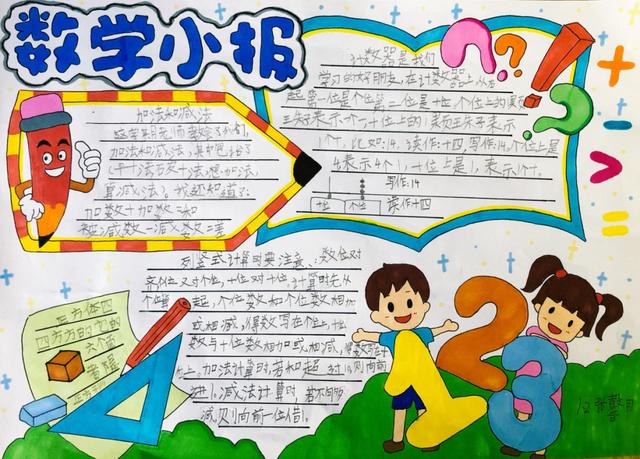 数学小报
加法和减法
这学期老师教给了我们,
加法和减法,其中包括了
算减法）。我还知道了:
加数+加数=和
被减数-减数=差
计数器是我们
学习的好朋友,在计数器上从右
起第一位是个位第二位是十位个位上的1
表示一个一十位上的1
1个十。比如:14。读作:十四,写作:14。个位上是
4表示4个1,十位上是1,表示1个十。
写作:14
十位 个位 读作:十四
列竖式计算时要注意:数位对
齐个位对个位,十位对十位。计算时先从
个位算起,个位数和个位数相加
或相减,得数写在个位上,十位
数与十位数相加或相减,得数写在十
位上,加法计算时,若和超过10则向前
进1,减法计算时,若不够
减则向前一位借1。
正方体四
四方方的它的
六个面
1
2
3
?
?
?
!
+
-
>
=